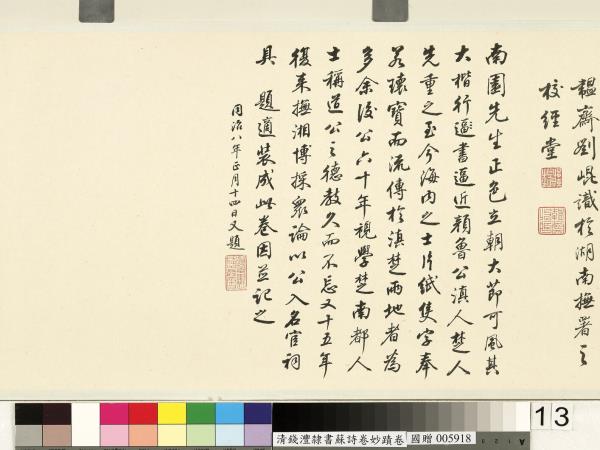 韞齋劉崐識於湖南撫署之
校經堂
南園先生正色立朝大節可風其
大楷行遒書逼近顏魯公滇人楚人
先重之至今海內之士片紙隻字奉
若瓌寶而流傳於滇楚兩地者為
多余後公六十年視學楚南都人
士稱道公之德教久而不忘又十五年
復来撫湘博採衆論以公入名宦祠
具題適裝成此卷因並記之
同治八年正月十四日又題
清錢灃隸書蘇詩卷妙蹟卷
國贈 005918
13